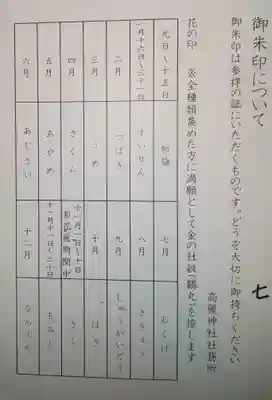 御朱印について
御朱印は参拝の証にいただくものです。どうぞ大切に御持ちください
高麗神社社務所
花の印 ※全種類集めた方に満願として金の社紋(鶴丸)を捺します
元日~十五日 初詣
一月十六日~三十一日 すいせん
二月 つばき
三月 うめ
四月 さくら
五月 あやめ
六月 あじさい
七月 むくげ
八月 ききょう
九月 しゅうかいどう
十月 はぎ
十一月一日~十日 きく
十一月十一日~三十日 もみじ
十二月 なんてん
七